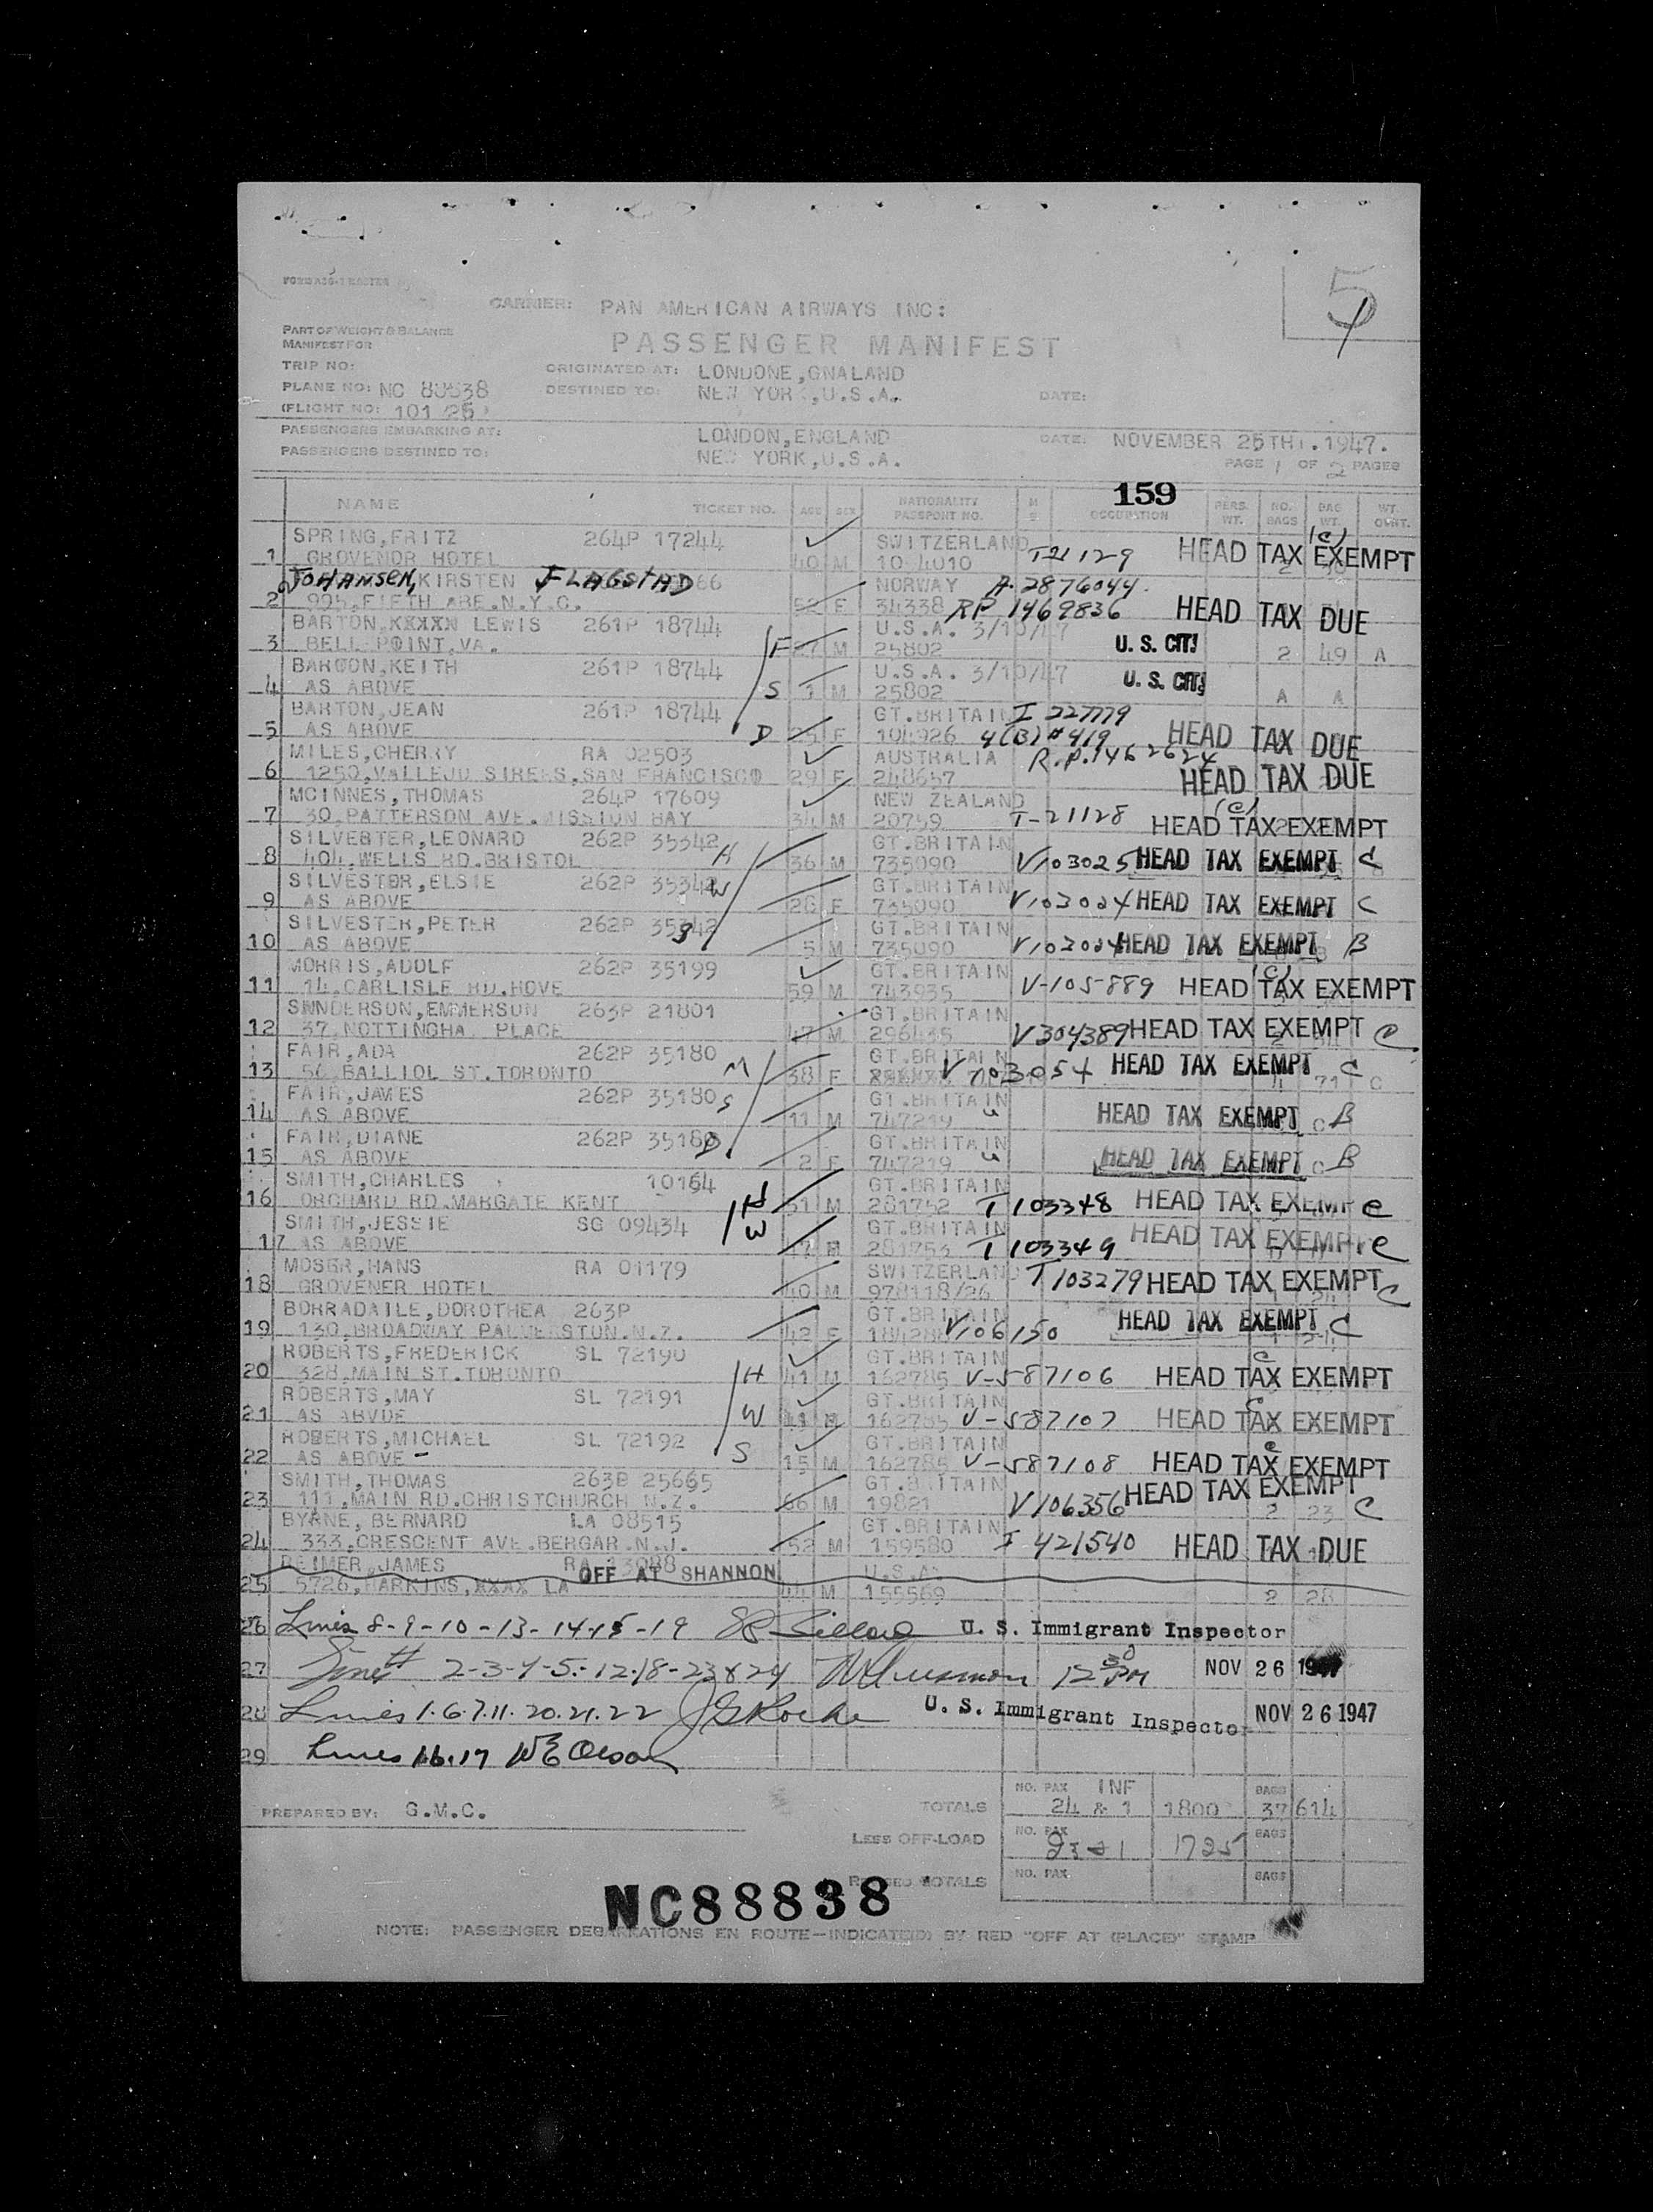 5
CARRIER: PAN AMERICAN AIRWAYS INC:
PART OF WEIGHT & BALANCE
MANIFEST FOR
PASSENGER MANIFEST
TRIP NO: ORIGINATED AT: LONDONE,GNALAND
PLANE NO: NC DESTINED TO: NEW YORK,U.S.A. DATE:
(FLIGHT NO: 101
PASSENGERS EMBARKING AT: LONDON,ENGLAND DATE: NOVEMBER 25TH .1947.
PASSENGERS DESTINED TO: NEW YORK,U.S.A. PAGE 1 OF 2 PAGES
159
NAME TICKET NO. AGE SEX NATIONALITY PASSPORT NO. OCCUPATION PERS. WT. NO. BAGS BAG WT.
SPRING,FRITZ 264P 17244 SWITZERLAND (C)
1 GROVENOR HOTEL 40 M 10 4010 HEAD TAX EXEMPT
JOHANSEN,KIRSTEN FLAGSTAD 66 NORWAY A-2876044
2 995,FIFTH ABE.N.Y.C. 52 F 34338 RP 1469836 HEAD TAX DUE
BARTON,XXXXN LEWIS 261P 18744 U.S.A. 3/10/47
3 BELL POINT,VA. F 27 M 25802 U. S. CIT. 2 49 A
BARTON,KEITH 261P 18744 U.S.A. 3/10/47
4 AS ABOVE S 1 M 25802 U. S. CIT. A A
BARTON,JEAN 261P 18744 GT.BRITAIN I 227779
5 AS ABOVE D 25 F 104926 4(B) # 419 HEAD TAX DUE
MILES,CHERRY RA 02503 AUSTRALIA R.P. 1462624
6 1250,VALLEJO SIREES,SAN FRANCISCO 29 F 248657 HEAD TAX DUE
MCINNES,THOMAS 264P 17609 NEW ZEALAND (C)
7 30,PATTERSON AVE.MISSION BAY 34 M 20759 T-21128 HEAD TAX EXEMPT
SILVESTER,LEONARD 262P 35342 H GT.BRITAIN
8 404,WELLS RD.BRISTOL 36 M 735090 V103025 HEAD TAX EXEMPT C
SILVESTER,ELSIE 262P 35342 W GT.BRITAIN
9 AS ABOVE 28 F 735090 V103024 HEAD TAX EXEMPT C
SILVESTER,PETER 262P 35342 S GT.BRITAIN
10 AS ABOVE 5 M 735090 HEAD TAX EXEMPT B
MORRIS,ADOLF 262P 35199 GT.BRITAIN (C)
11 14,CARLISLE RD.HOVE 59 M 743935 V-105889 HEAD TAX EXEMPT
SNNDERSON,EMMERSON 263P 21801 GT.BRITAIN
12 37,NOTTINGHA PLACE 47 M 296435 V304389 HEAD TAX EXEMPT C
FAIR,ADA 262P 35180 M GT.BRITAIN
13 56,BALLIOL ST.TORONTO 38 F V703054 HEAD TAX EXEMPT C 71 C
FAIR,JAMES 262P 35180 S GT.BRITAIN
14 AS ABOVE 11 M 747219 " HEAD TAX EXEMPT C B
FAIR,DIANE 262P 35180 D GT.BRITAIN
15 AS ABOVE 2 F 747219 " HEAD TAX EXEMPT C B
SMITH,CHARLES 10164 H GT.BRITAIN
16 ORCHARD RD.MARGATE KENT 51 M 281752 T 103348 HEAD TAX EXEMPT C
SMITH,JESSIE SG 09434 W GT.BRITAIN
17 AS ABOVE 281753 T 103349 HEAD TAX EXEMPT C
MOSER,HANS RA 01179 SWITZERLAND
18 GROVENER HOTEL 40 M 978118/26 T103279 HEAD TAX EXEMPT C
BORRADAILE,DOROTHEA 263P GT.BRITAIN
19 130,BROADWAY PALMERSTON.N.Z. 42 F V106150 HEAD TAX EXEMPT C
ROBERTS,FREDERICK SL 72190 GT.BRITAIN C
20 328,MAIN ST.TORONTO H 41 M 162785 V-587106 HEAD TAX EXEMPT
ROBERTS,MAY SL 72191 GT.BRITAIN C
21 AS ABVOE W 162785 V-587107 HEAD TAX EXEMPT
ROBERTS,MICHAEL SL 72192 GT.BRITAIN C
22 AS ABOVE - S 15 M 162785 V-587108 HEAD TAX EXEMPT
SMITH,THOMAS 263B 25665 GT.BRITAIN
23 111,MAIN RD.CHRISTCHURCH N.Z. 66 M 19821 V106356 HEAD TAX EXEMPT 2 23 C
BYRNE, BERNARD LA 08515 GT.BRITAIN
24 333,CRESCENT AVE.BERGAR.N.J. 52 M 159580 I 421540 HEAD TAX DUE
REIMER,JAMES OFF AT SHANNON U.S.A.
25 5726,HARKINS,XXXX LA 44 M 155569 2 28
26 Lines 8-9-10-13-14-15-19 U. S. Immigrant Inspector
27 2-3-4-5-12-18-23 & 24 12 30 PM NOV 26 1947
28 Lines 1.6.7.11.20.21.22 J G Roche U. S. Immigrant Inspector NOV 26 1947
29 Lines 16.17 W E Olson
PREPARED BY: G.M.C. TOTALS NO. PAX INF 24 & 1 1800 BAGS 37 614
LESS OFF-LOAD NO. PAX 23 & 1 1725 BAGS
TOTALS NO. PAX BAGS
NC88838
NOTE: PASSENGER DEBARKATIONS EN ROUTE—INDICATED BY RED "OFF AT (PLACE)" STAMP